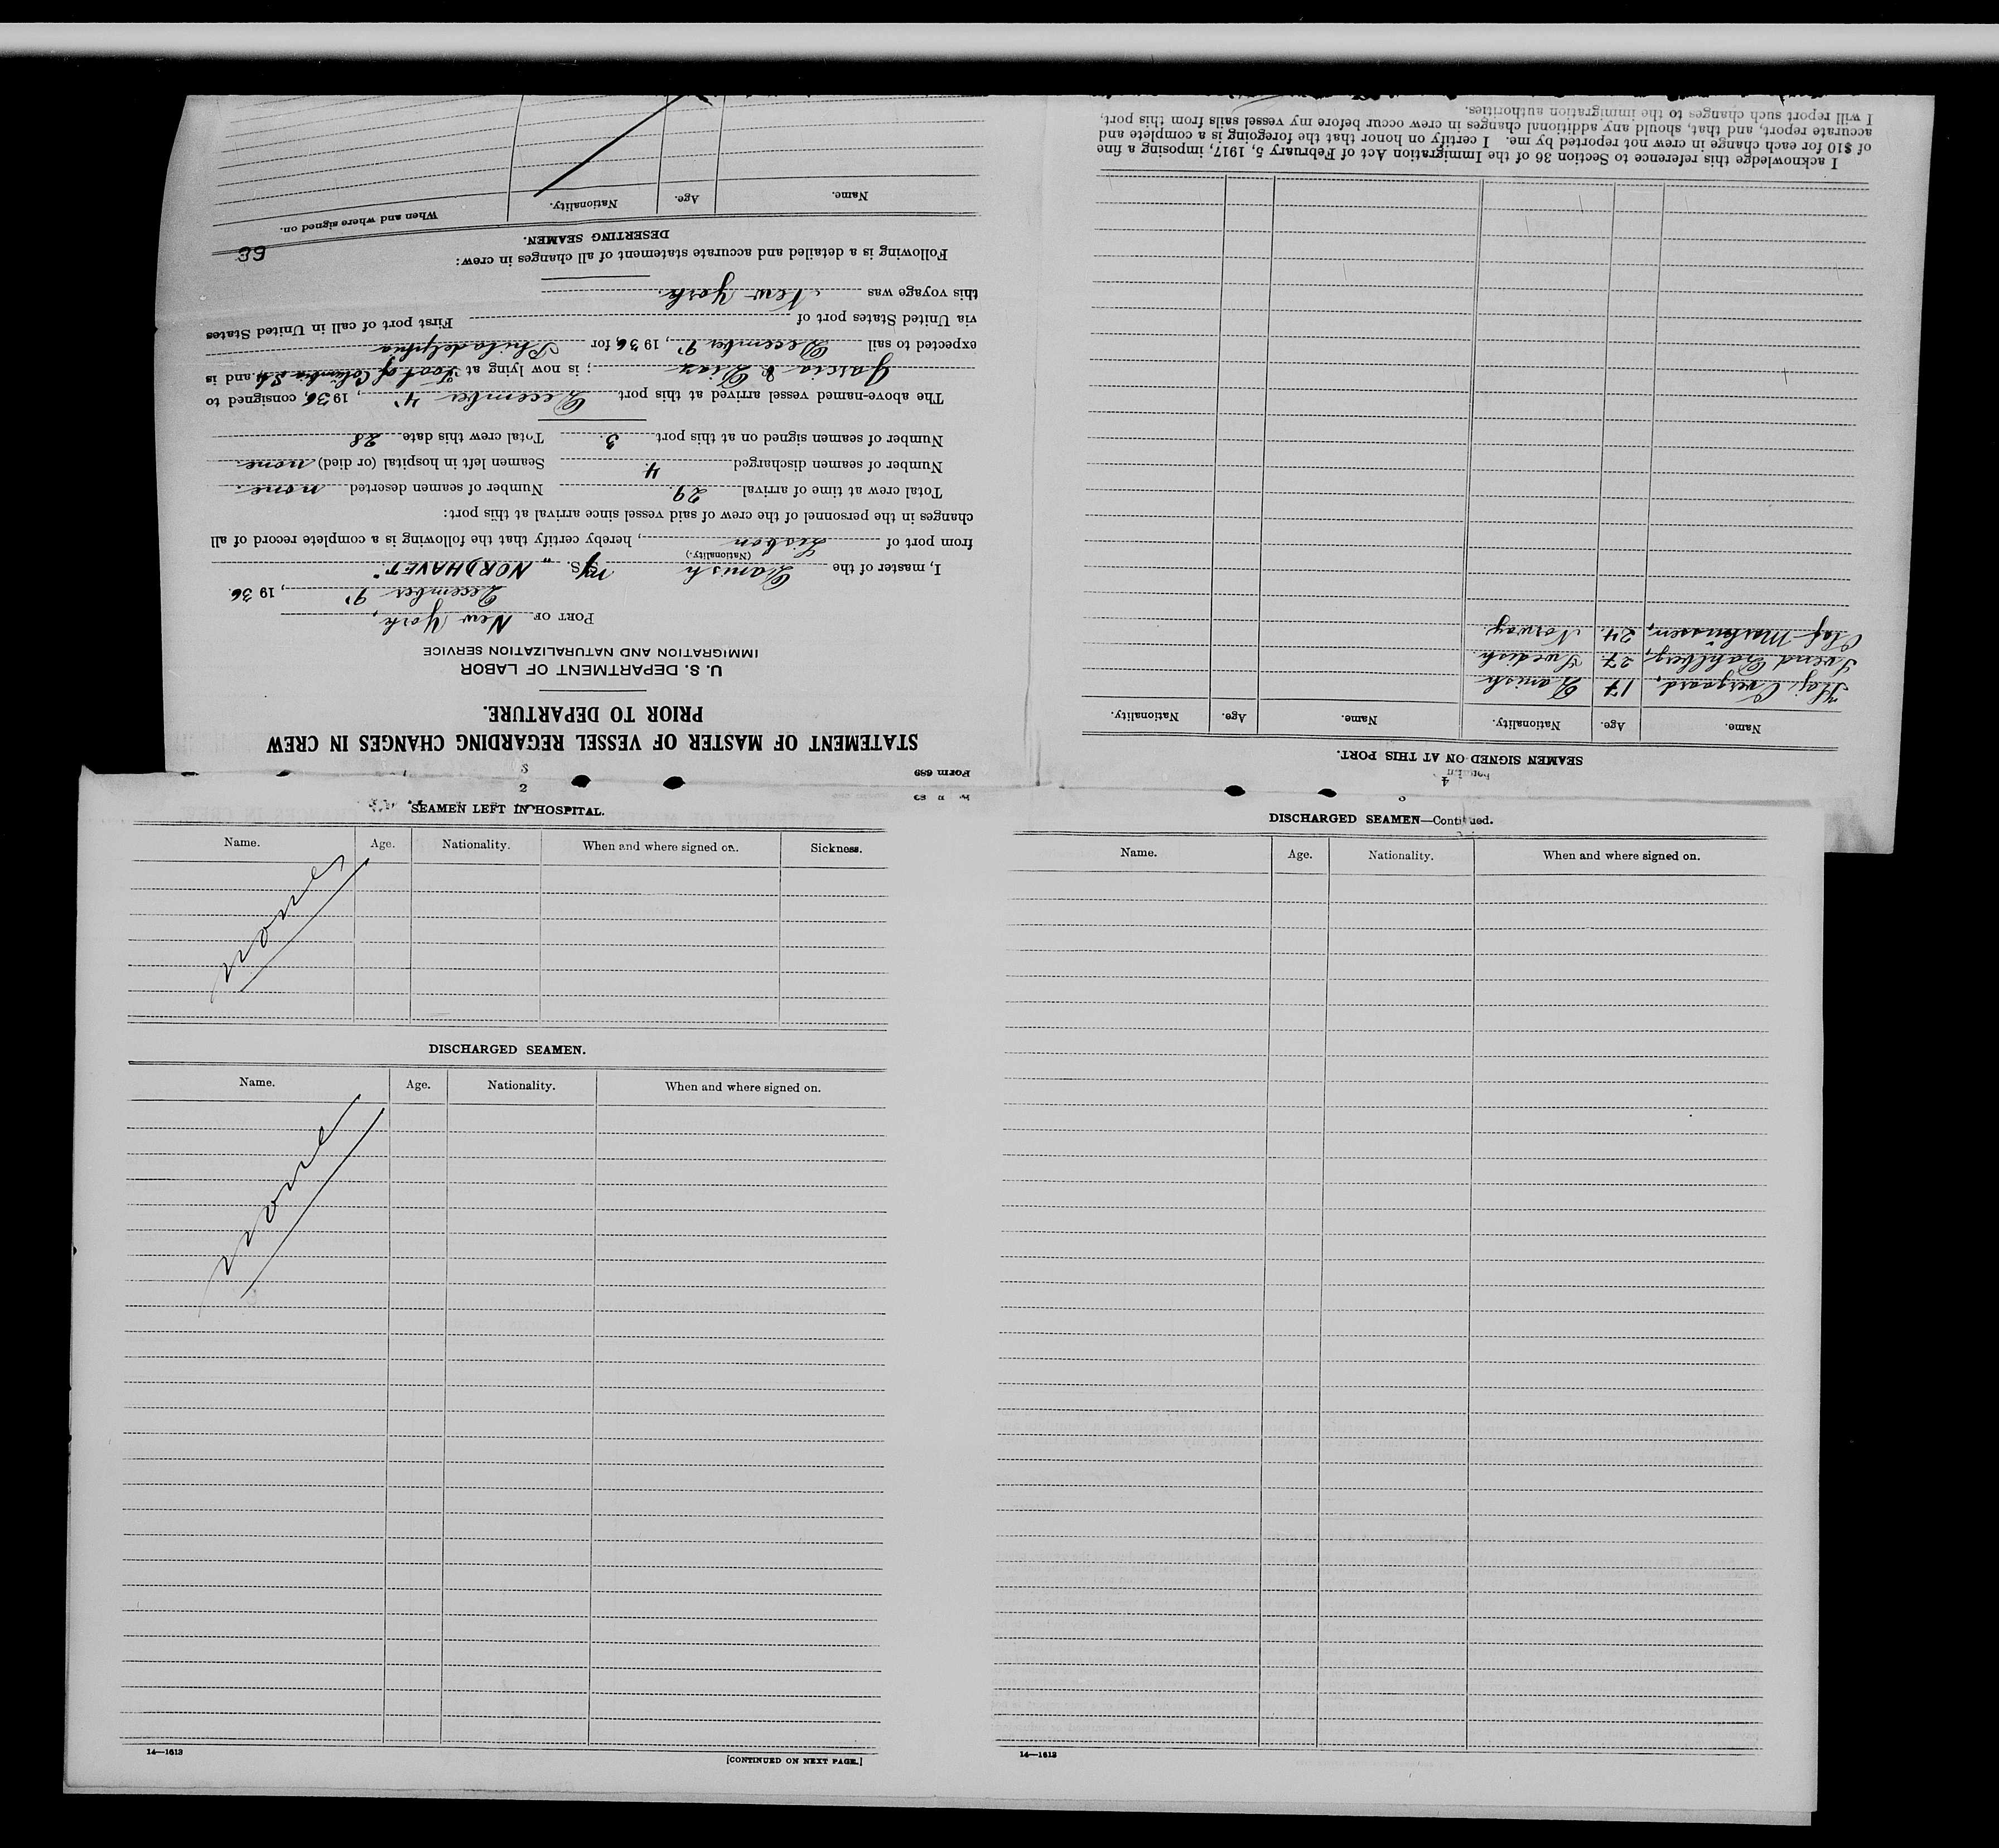 Form 689
STATEMENT OF MASTER OF VESSEL REGARDING CHANGES IN CREW
PRIOR TO DEPARTURE.
U. S. DEPARTMENT OF LABOR
IMMIGRATION AND NATURALIZATION SERVICE
PORT OF New York,
December 9', 1936.
I, master of the Danish M/S. "NORDHAVET"
(Nationality.)
from port of Lisbon, hereby certify that the following is a complete record of all
changes in the personnel of the crew of said vessel since arrival at this port:
Total crew at time of arrival 29. Number of seamen deserted none.
Number of seamen discharged 4. Seamen left in hospital (or died) none.
Number of seamen signed on at this port 3. Total crew this date 28
The above-named vessel arrived at this port December 4', 1936, consigned to
Garcia & Diaz; is now lying at Foot of Columbia St., and is
expected to sail December 9', 1936, for Philadelphia
via United States port of First port of call in United States
this voyage was New York.
Following is a detailed and accurate statement of all changes in crew:
39
DESERTING SEAMEN.
Name. Age. Nationality. When and where signed on.
4
SEAMEN SIGNED ON AT THIS PORT.
Name. Age. Nationality. Name. Age. Nationality.
Overgaard, 17 Danish
Svend Dahlberg, 27. Swedish.
Olaf 24. Norway.
I acknowledge this reference to Section 36 of the Immigration Act of February 5, 1917, imposing a fine
of $10 for each change in crew not reported by me. I certify on honor that the foregoing is a complete and
accurate report, and that, should any additional changes in crew occur before my vessel sails from this port,
I will report such changes to the immigration authorities.
2
SEAMEN LEFT IN HOSPITAL.
Name. Age. Nationality. When and where signed on. Sickness.
none
DISCHARGED SEAMEN.
Name. Age. Nationality. When and where signed on.
none
14—1613 [CONTINUED ON NEXT PAGE.]
DISCHARGED SEAMEN—Continued.
Name. Age. Nationality. When and where signed on.
14—1613